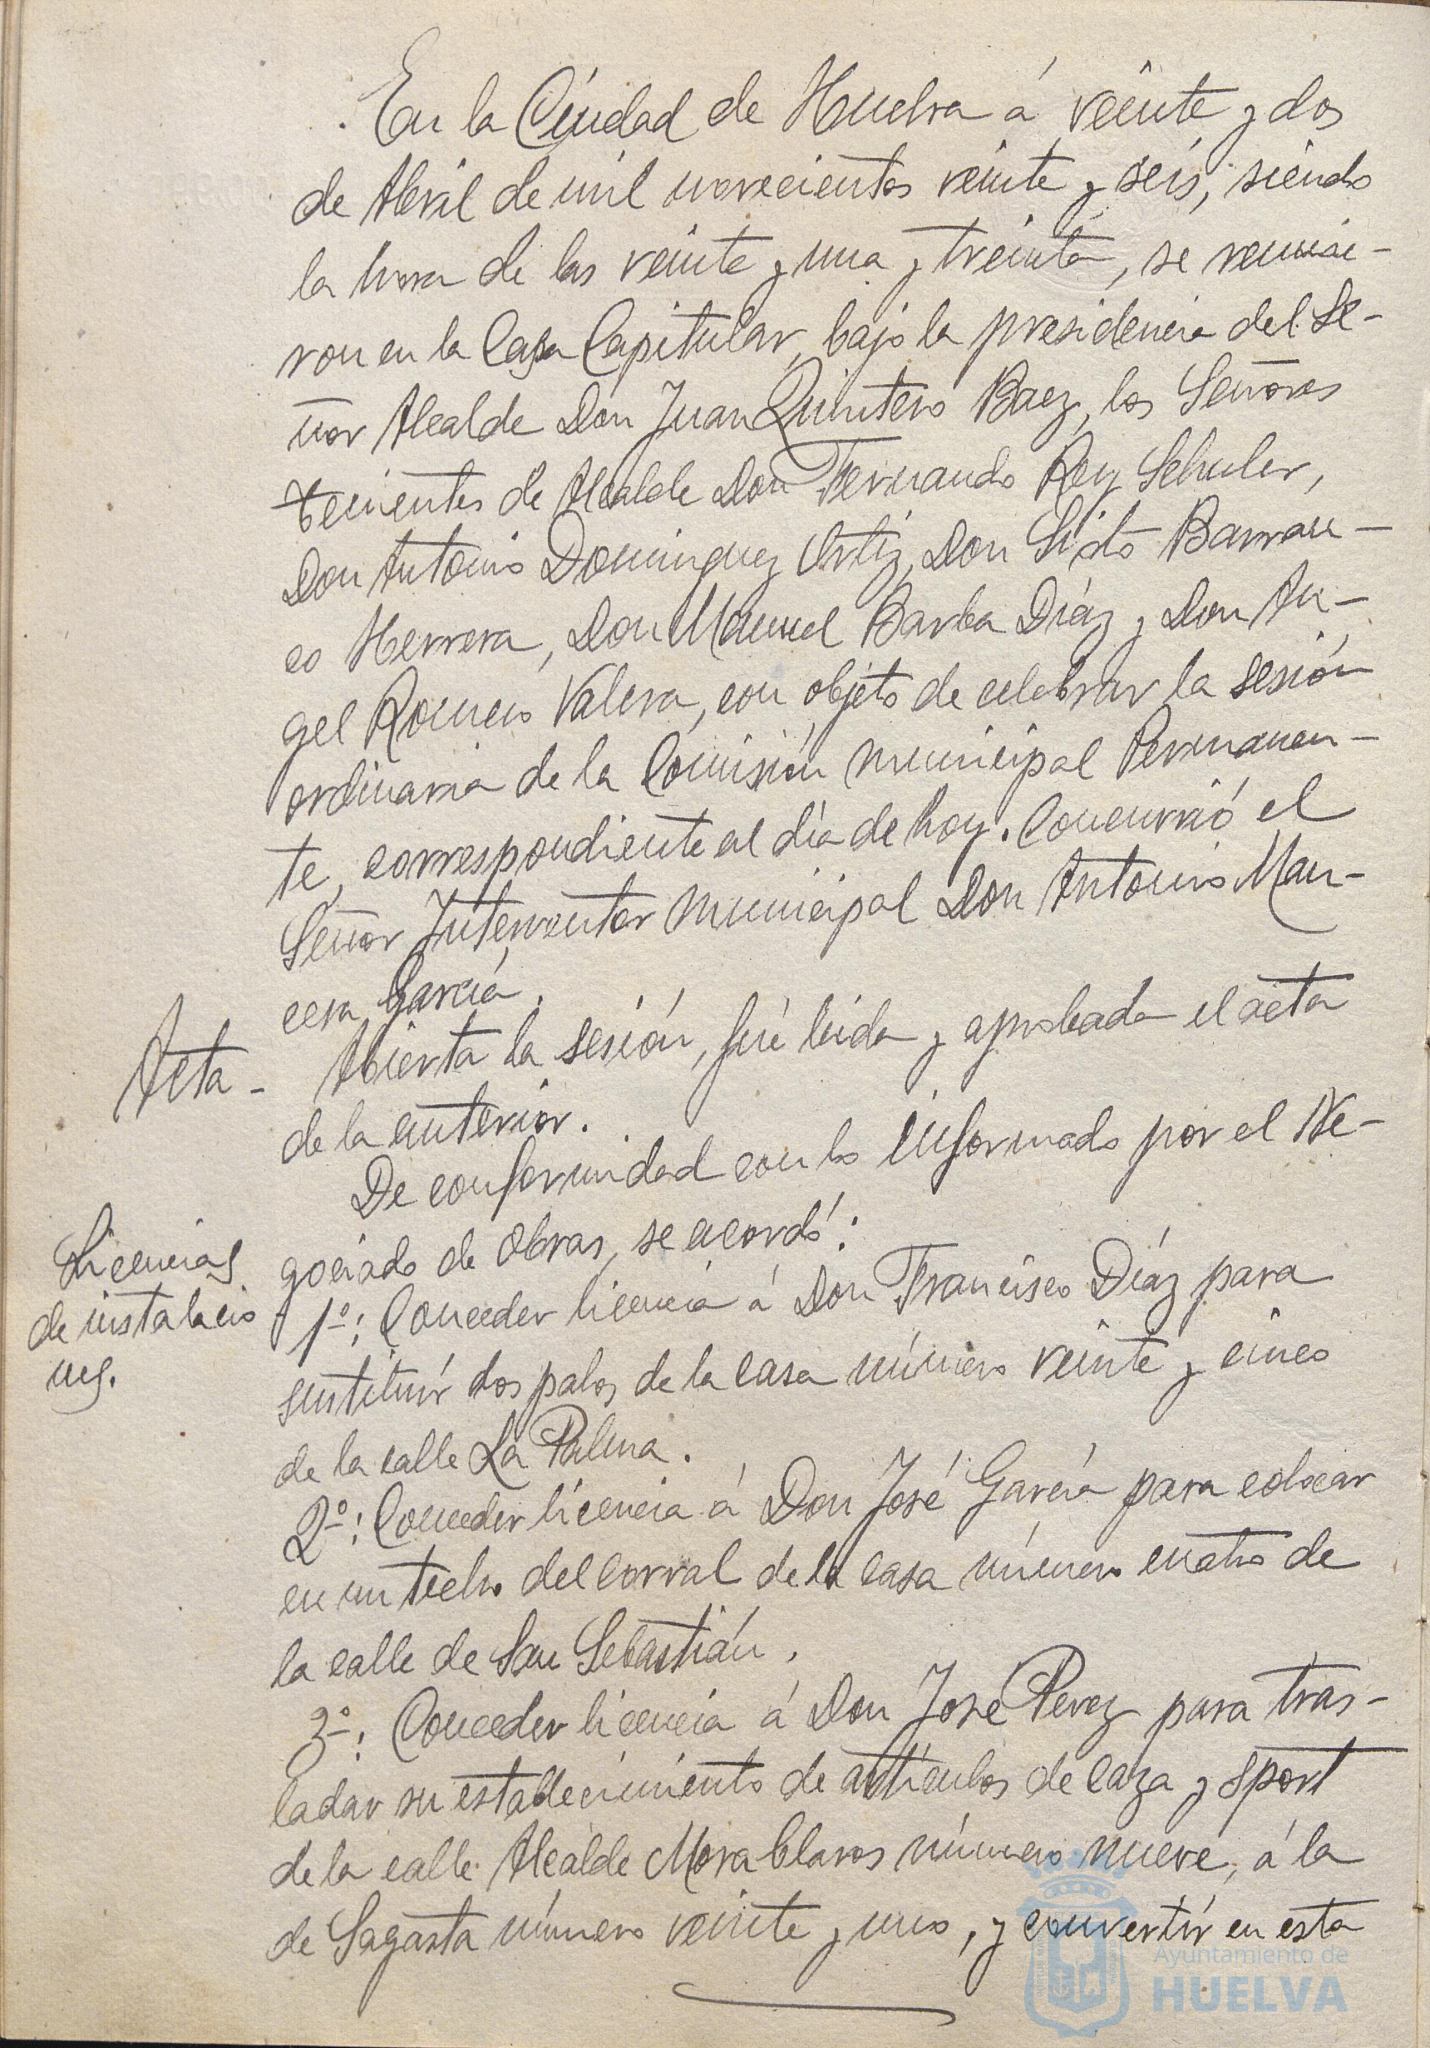 En la Ciudad de Huelva á veinte y dos
de Abril de mil novecientos veinte y seis, siendo
la hora de las veinte y una y treinta, se reunie-
ron en la Casa Capitular, bajo la presidencia del Se-
ñor Alcalde Don Juan Quintero Baez, los Señores
tenientes de Alcalde Don Fernando Rey Schuler,
Don Antonio Dominguez Ortiz, Don Sixto Barran-
co Herrera, Don Manuel Barba Díaz y Don An-
gel Romero Valera, con objeto de celebrar la sesión
ordinaria de la Comisión municipal Permanen-
te, correspondiente al día de hoy. Concurrió el
Señor Interventor municipal Don Antonio Man-
cera García.
Acta - Abierta la sesión, fué leida y aprobada el acta
de la anterior.
De conformidad con lo informado por el Ne-
Licencias
de instalacio
nes.
gociado de Obras, se acordó:
1º: Conceder licencia á Don Francisco Díaz para
sustituír dos palos de la casa número veinte y cinco
de la calle La Palma.
2º: Conceder licencia á Don José García para colocar
en un techo del corral de la casa número cuatro de
la calle de San Sebastián.
3º: Conceder licencia á Don José Perez para tras-
ladar su establecimiento de artículos de caza y sport
de la calle Alcalde Mora Claros número nueve, á la
de Sagasta número veinte y uno, y convertír en esta
Ayuntamiento de
HUELVA